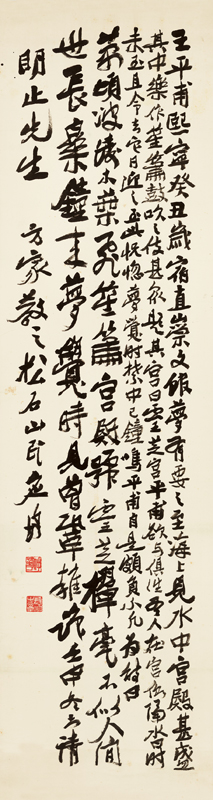 王平甫熙寧癸丑歲宿直崇文館夢有要之至海上見水中宮殿甚盛
其中樂作笙簫鼓吹之伎甚眾題其宮曰靈芝宮平甫欲與俱往有人在宮側隔水曰時
未至且令去它日迎之至此恍惚夢覺時禁中已鐘鳴平甫自是頗負不凡為詩曰
萬頃波濤木葉飛笙簫宮殿號靈芝揮毫不似人間
世長樂鐘來夢覺時見曾鞏雜誌壬申冬請
朗止先生
方家教之松石山民